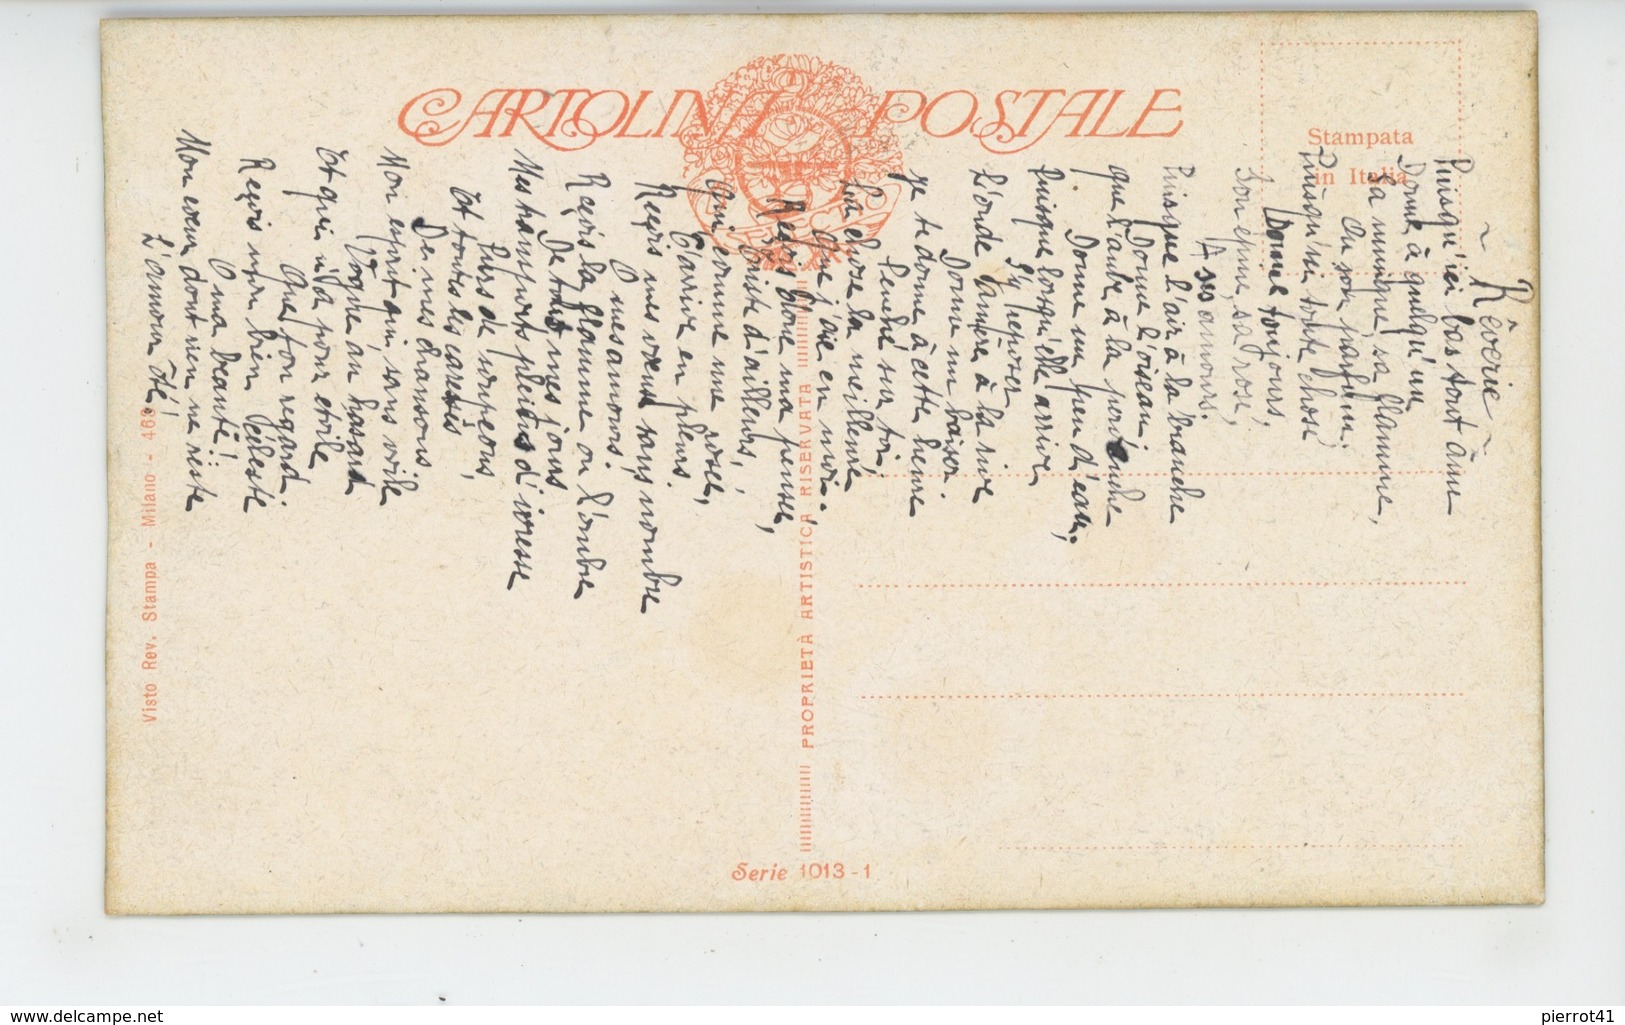 CARTOLINA POSTALE
Stampata
in Italia
~ Rêverie ~
Puisqu'ici bas tout âme
Donne à quelqu'un
Sa musique, sa flamme,
Ou son parfum;
Puisqu'ici toute chose
Donne toujours,
Son épine, sa rose,
A ses amours.
Puisque l'air à la branche
Donne l'oiseau;
Que l'aube à la pervenche
Donne un peu d'eau,
Puisque lorsqu'elle arrive
S'y reposer
L'onde amère à la rive
Donne un baiser.
Je te donne à cette heure
Penché sur toi,
La chose la meilleure
Que j'aie en moi.
Reçois donc ma pensée,
Triste d'ailleurs,
Qui comme une rosée,
T'arrive en pleurs.
Reçois mes voeux sans nombre
O mes amours.
Reçois la flamme ou l'ombre
De tous mes jours
Mes transports pleins d'ivresse
Purs de soupçons,
Et toutes les caresses
De mes chansons
Mon esprit qui sans voile
Vogue au hasard
Et qui n'a pour étoile
Que ton regard.
Reçois mon bien céleste
O ma beauté!!
Mon coeur dont rien ne reste
L'amour ôté!
PROPRIETÀ ARTISTICA RISERVATA
Visto Rev. Stampa - Milano - 468
Serie 1013-1
www.delcampe.net
pierrot41